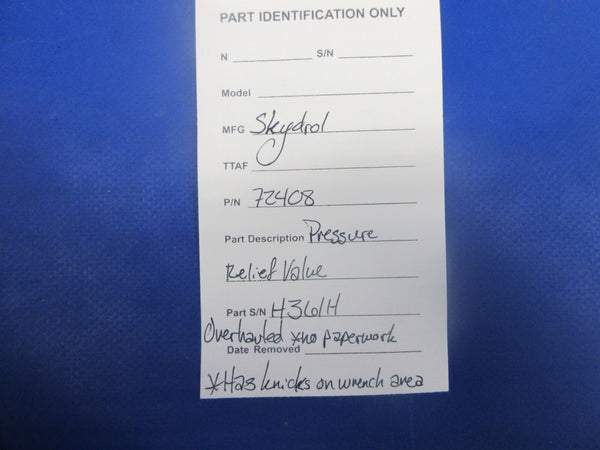 PART IDENTIFICATION ONLY
N ____________ S/N ____________
Model ____________
MFG Skydrol
TTAF ____________
P/N 72408
Part Description Pressure
Relief Valve
Part S/N H361H
Overhauled *no paperwork
Date Removed ____________
*Has knicks on wrench area